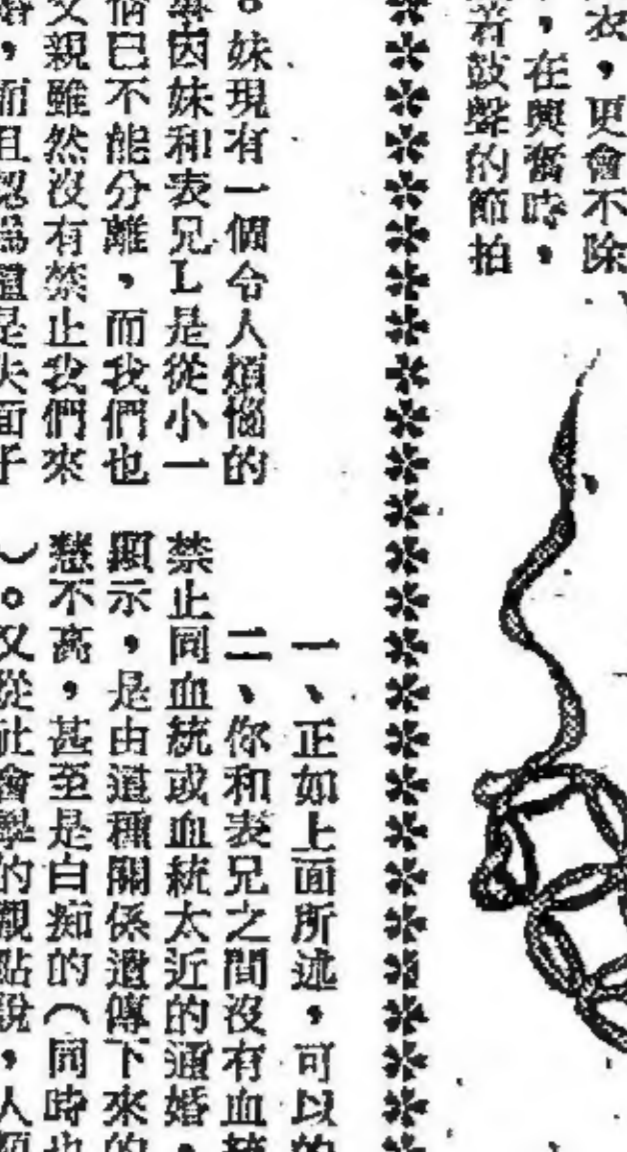 衣，更會不除
，在興奮時，
着鼓聲的節拍
。妹現有一個令人煩惱的
因妹和表兄L是從小一
已不能分離，而我們也
父親雖然沒有禁止我們來
，而且認為這是失面子
一、正如上面所述，可以的
二、你和表兄之間沒有血統
禁止同血統或血統太近的通婚，
顯示，是由這種關係遺傳下來的
慧不高，甚至是白痴的（同時也
）。又從社會學的觀點說，人類